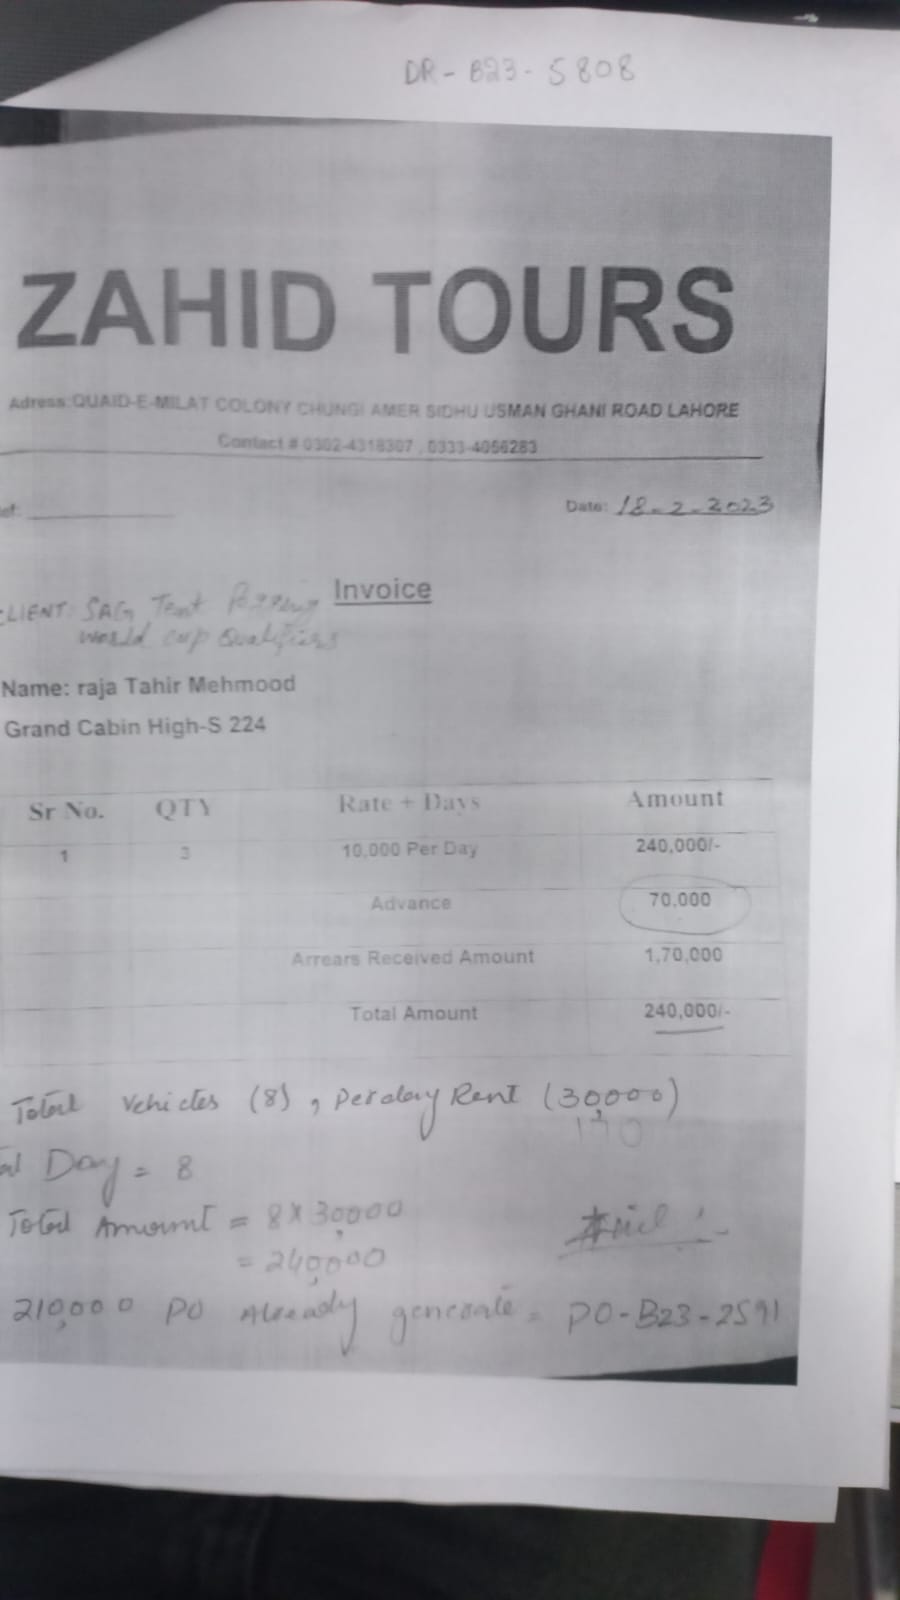 DR - B23 - 5808
ZAHID TOURS
Adress:QUAID-E-MILAT COLONY CHUNGI AMER SIDHU USMAN GHANI ROAD LAHORE
Contact # 0302-4318307 , 0333-4056283
ef: Date: 18-2-2023
Invoice
CLIENT: SAG Tent Pegging
world cup Qualifiers
Name: raja Tahir Mehmood
Grand Cabin High-S 224
Sr No. QTY Rate + Days Amount
1 3 10,000 Per Day 240,000/-
Advance 70,000
Arrears Received Amount 1,70,000
Total Amount 240,000/-
Total Vehicles (8) , Perday Rent (30,000)
170
al Day = 8
Total Amount = 8 x 30,000
= 240,000
210,000 PO Already generate = PO-B23-2591